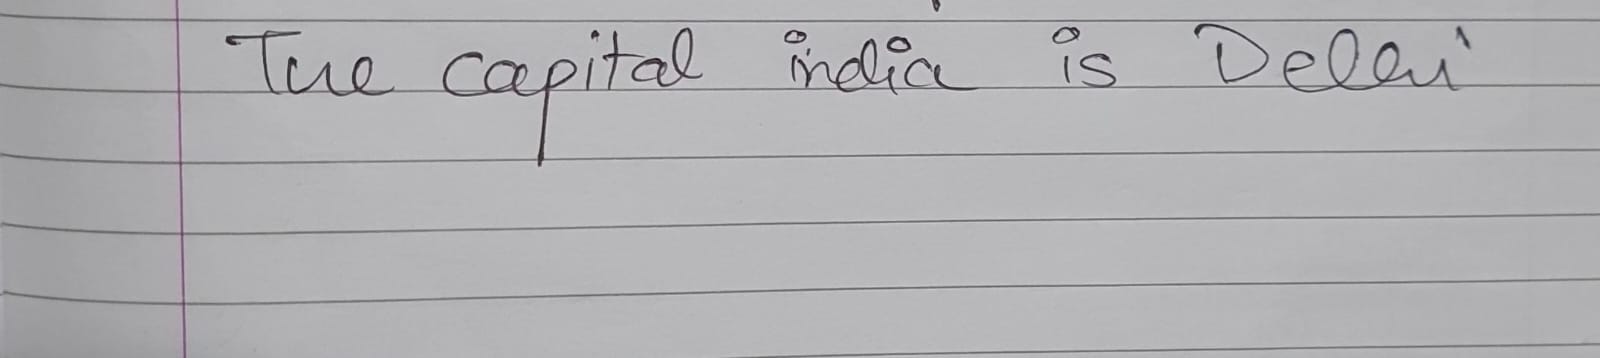 The capital india is Delhi